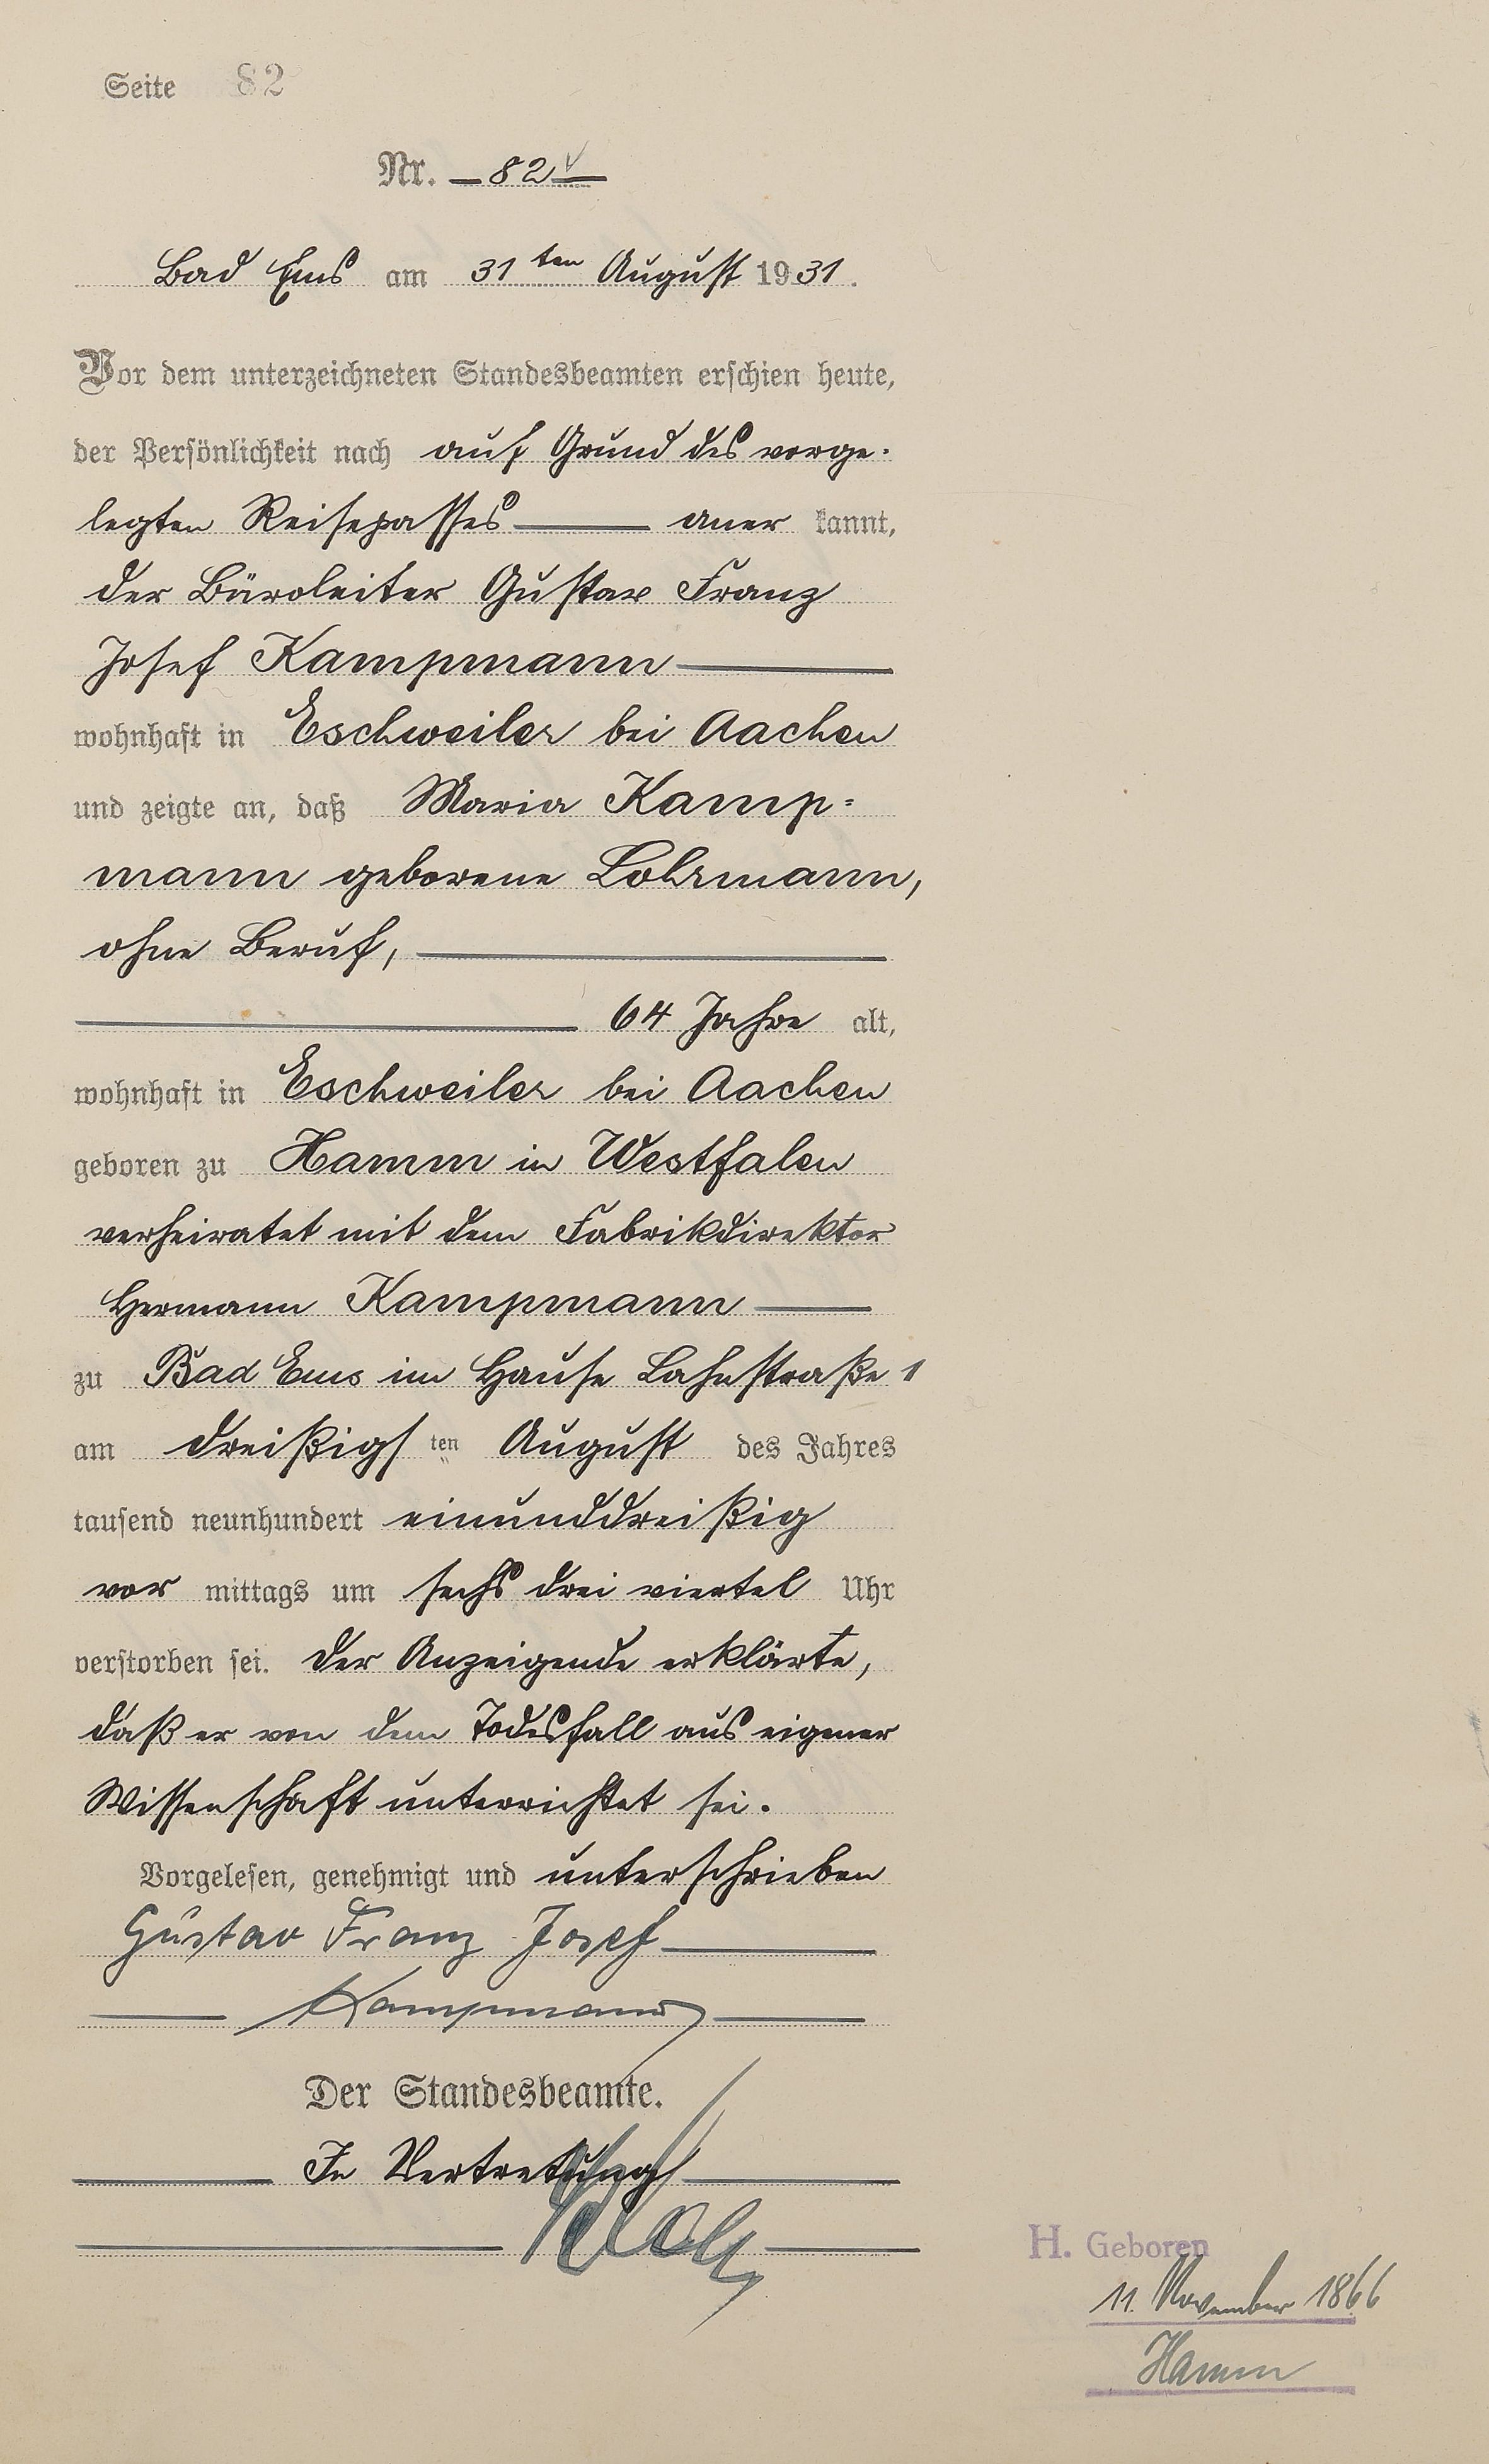 Seite 82
Nr. 82
Bad Ems am 31ten August 1931.
Vor dem unterzeichneten Standesbeamten erschien heute,
der Persönlichkeit nach auf Grund des vorge-
legten Reisepasses aner kannt,
der Büroleiter Gustav Franz
Josef Kampmann
wohnhaft in Eschweiler bei Aachen
und zeigte an, daß Maria Kamp=
mann geborene Lohrmann,
ohne Beruf,
64 Jahre alt,
wohnhaft in Eschweiler bei Aachen
geboren zu Hamm in Westfalen
verheiratet mit dem Fabrikdirektor
Hermann Kampmann
zu Bad Ems im Hause Lahnstraße 1
am dreißigsten August des Jahres
tausend neunhundert einunddreißig
vor mittags um sechs drei viertel Uhr
verstorben sei. Der Anzeigende erklärte,
daß er von dem Todesfall aus eigener
Wissenschaft unterrichtet sei.
Vorgelesen, genehmigt und unterschrieben
Gustav Franz Josef
Kampmann
Der Standesbeamte.
In Vertretung
H. Geboren
11. November 1866
Hamm